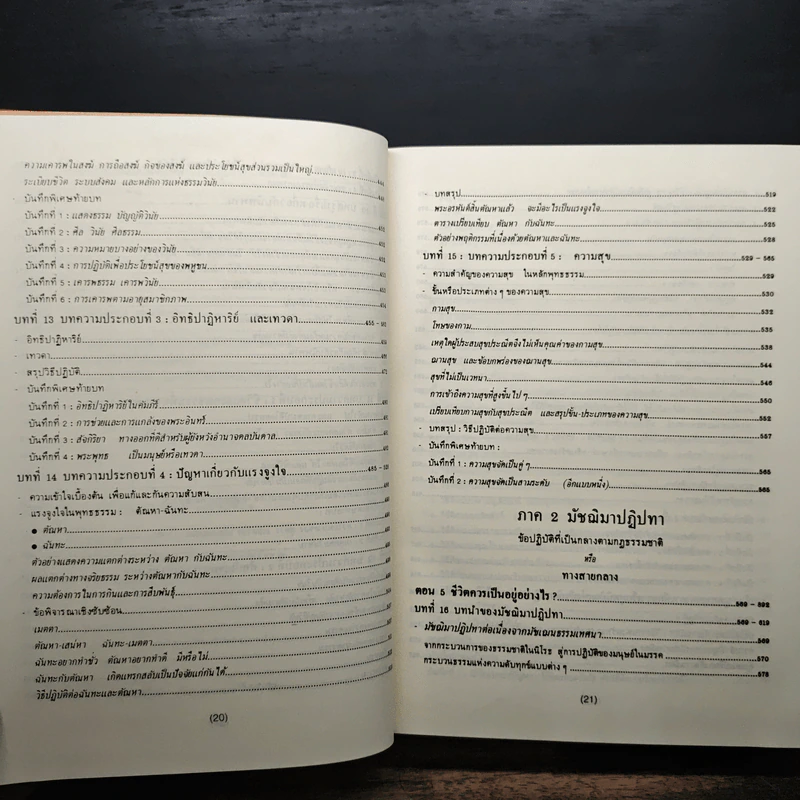 ความเคารพในสงฆ์ การถือสงฆ์ กิจของสงฆ์ และประโยชน์สุขส่วนรวมเป็นใหญ่
ระเบียบชีวิต ระบบสังคม และหลักการแห่งธรรมวินัย
บันทึกพิเศษท้ายบท
บันทึกที่ 1 : แสดงธรรม บัญญัติวินัย
บันทึกที่ 2 : ศีล วินัย ศีลธรรม
บันทึกที่ 3 : ความหมายบางอย่างของวินัย
บันทึกที่ 4 : การปฏิบัติเพื่อประโยชน์สุขของพหูชน
บันทึกที่ 5 : เคารพธรรม เคารพวินัย
บันทึกที่ 6 : การเคารพตามอายุสมาชิกภาพ
บทที่ 13 บทความประกอบที่ 3 : อิทธิปาฏิหาริย์ และเทวดา 455 -
- อิทธิปาฏิหาริย์
- เทวดา
- สรุปวิธีปฏิบัติ
- บันทึกพิเศษท้ายบท
บันทึกที่ 1 : อิทธิปาฏิหาริย์ในคัมภีร์
บันทึกที่ 2 : การช่วยและการแกล้งของพระอินทร์
บันทึกที่ 3 : สัจกิริยา ทางออกที่ดีสำหรับผู้ยังหวังอำนาจดลบันดาล
บันทึกที่ 4 : พระพุทธ เป็นมนุษย์หรือเทวดา
บทที่ 14 บทความประกอบที่ 4 : ปัญหาเกี่ยวกับแรงจูงใจ 485 -
- ความเข้าใจเบื้องต้น เพื่อแก้และกันความสับสน
- แรงจูงใจในพุทธธรรม : ตัณหา-ฉันทะ
● ตัณหา
● ฉันทะ
ตัวอย่างแสดงความแตกต่างระหว่าง ตัณหา กับฉันทะ
ผลแตกต่างทางจริยธรรม ระหว่างตัณหากับฉันทะ
ความต้องการในการกินและการสืบพันธุ์
- ข้อพิจารณาเชิงซับซ้อน
เมตตา
ตัณหา-เสน่หา ฉันทะ-เมตตา
ฉันทะอยากทำชั่ว ตัณหาอยากทำดี มีหรือไม่
ฉันทะกับตัณหา เกิดแทรกสลับเป็นปัจจัยแก่กันได้
วิธีปฏิบัติต่อฉันทะและตัณหา
(20)
- บทสรุป 519
พระอรหันต์สิ้นตัณหาแล้ว จะมีอะไรเป็นแรงจูงใจ 522
ตารางเปรียบเทียบ ตัณหา กับฉันทะ 525
ตัวอย่างพฤติกรรมที่เนื่องด้วยตัณหาและฉันทะ 528
บทที่ 15 : บทความประกอบที่ 5 : ความสุข 529 - 565
- ความสำคัญของความสุข ในหลักพุทธธรรม 529
- ขั้นหรือประเภทต่าง ๆ ของความสุข 530
กามสุข 532
โทษของกาม 535
เหตุใดผู้ประสบสุขประณีตจึงไม่เห็นคุณค่าของกามสุข 538
ฌานสุข และข้อบกพร่องของฌานสุข 544
สุขที่ไม่เป็นเวทนา 546
การเข้าถึงความสุขที่สูงขึ้นไป ๆ 550
เปรียบเทียบกามสุขกับสุขประณีต และสรุปขั้น-ประเภทของความสุข 552
- บทสรุป : วิธีปฏิบัติต่อความสุข 557
- บันทึกพิเศษท้ายบท :
บันทึกที่ 1 : ความสุขจัดเป็นคู่ ๆ 565
บันทึกที่ 2 : ความสุขจัดเป็นสามระดับ (อีกแบบหนึ่ง) 565
ภาค 2 มัชฌิมาปฏิปทา
ข้อปฏิบัติที่เป็นกลางตามกฎธรรมชาติ
หรือ
ทางสายกลาง
ตอน 5 ชีวิตควรเป็นอยู่อย่างไร ? 569 - 892
บทที่ 16 บทนำของมัชฌิมาปฏิปทา 569 - 619
- มัชฌิมาปฏิปทาต่อเนื่องจากมัชเฌนธรรมเทศนา 569
จากกระบวนการของธรรมชาติในนิโรธ สู่การปฏิบัติของมนุษย์ในมรรค 570
กระบวนธรรมแห่งความดับทุกข์แบบต่าง ๆ 573
(21)